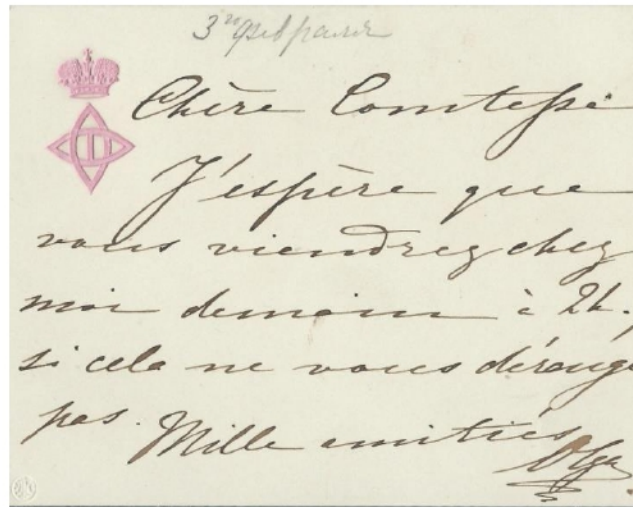 3го февраля
Chère Comtesse
J'espère que
vous viendrez chez
moi demain à 2h.,
si cela ne vous dérange
pas. Mille amitiés
Olga